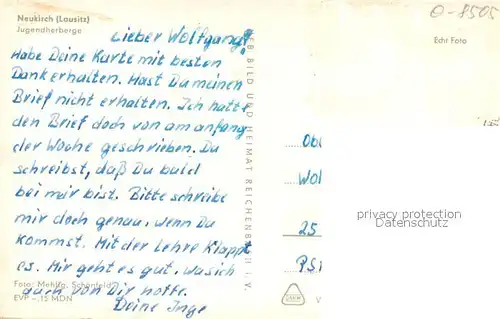 Neukirch (Lausitz)
Jugendherberge
Lieber Wolfgang!
Habe Deine Karte mit besten
Dank erhalten. Hast Du meinen
Brief nicht erhalten. Ich hatte
den Brief doch von am anfang
der Woche geschrieben. Du
schreibst, daß Du bald
bei mir bist. Bitte schreibe
mir doch genau, wenn Du
kommst. Mit der Lehre klappt
es. Mir geht es gut, was ich
auch von Dir hoffe.
Deine Inge
Foto: Mehlig, Schönfeld
EVP –,15 MDN
BILD UND HEIMAT REICHENBACH I. V.
O-8505
Echt Foto
25
privacy protection
privacy protection
V